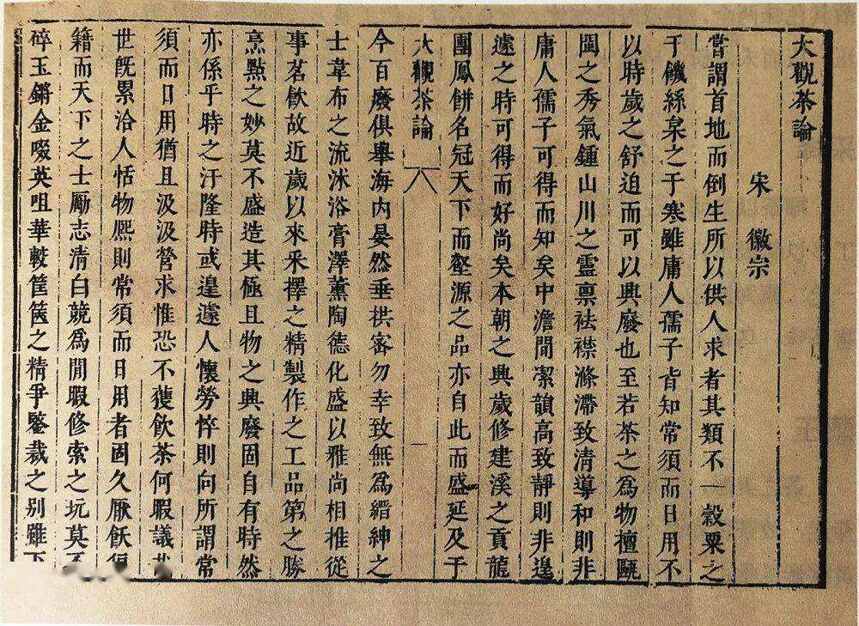 大觀茶論
宋　徽宗
嘗謂首地而倒生所以供人求者其類不一穀粟之
于饑絲枲之于寒雖庸人孺子皆知常須而日用不
以時歲之舒迫而可以興廢也至若茶之為物擅甌
閩之秀氣鍾山川之靈禀祛襟滌滯致清導和則非
庸人孺子可得而知矣中澹間潔韻高致靜則非遑
遽之時可得而好尚矣本朝之興歲修建溪之貢龍
團鳳餅名冠天下而壑源之品亦自此而盛延及于
大觀茶論　一
今百廢俱舉海內晏然垂拱密勿幸致無為縉紳之
士韋布之流沐浴膏澤薰陶德化盛以雅尚相推從
事茗飲故近歲以來采擇之精製作之工品第之勝
烹點之妙莫不盛造其極且物之興廢固自有時然
亦係乎時之汙隆時或遑遽人懷勞悴則向所謂常
須而日用猶且汲汲營求惟恐不獲飲茶何暇議
世既累洽人恬物熙則常須而日用者固久厭飫
籍而天下之士勵志清白競為閒暇修索之玩莫
碎玉鏘金啜英咀華較筐篋之精爭鑒裁之別雖下